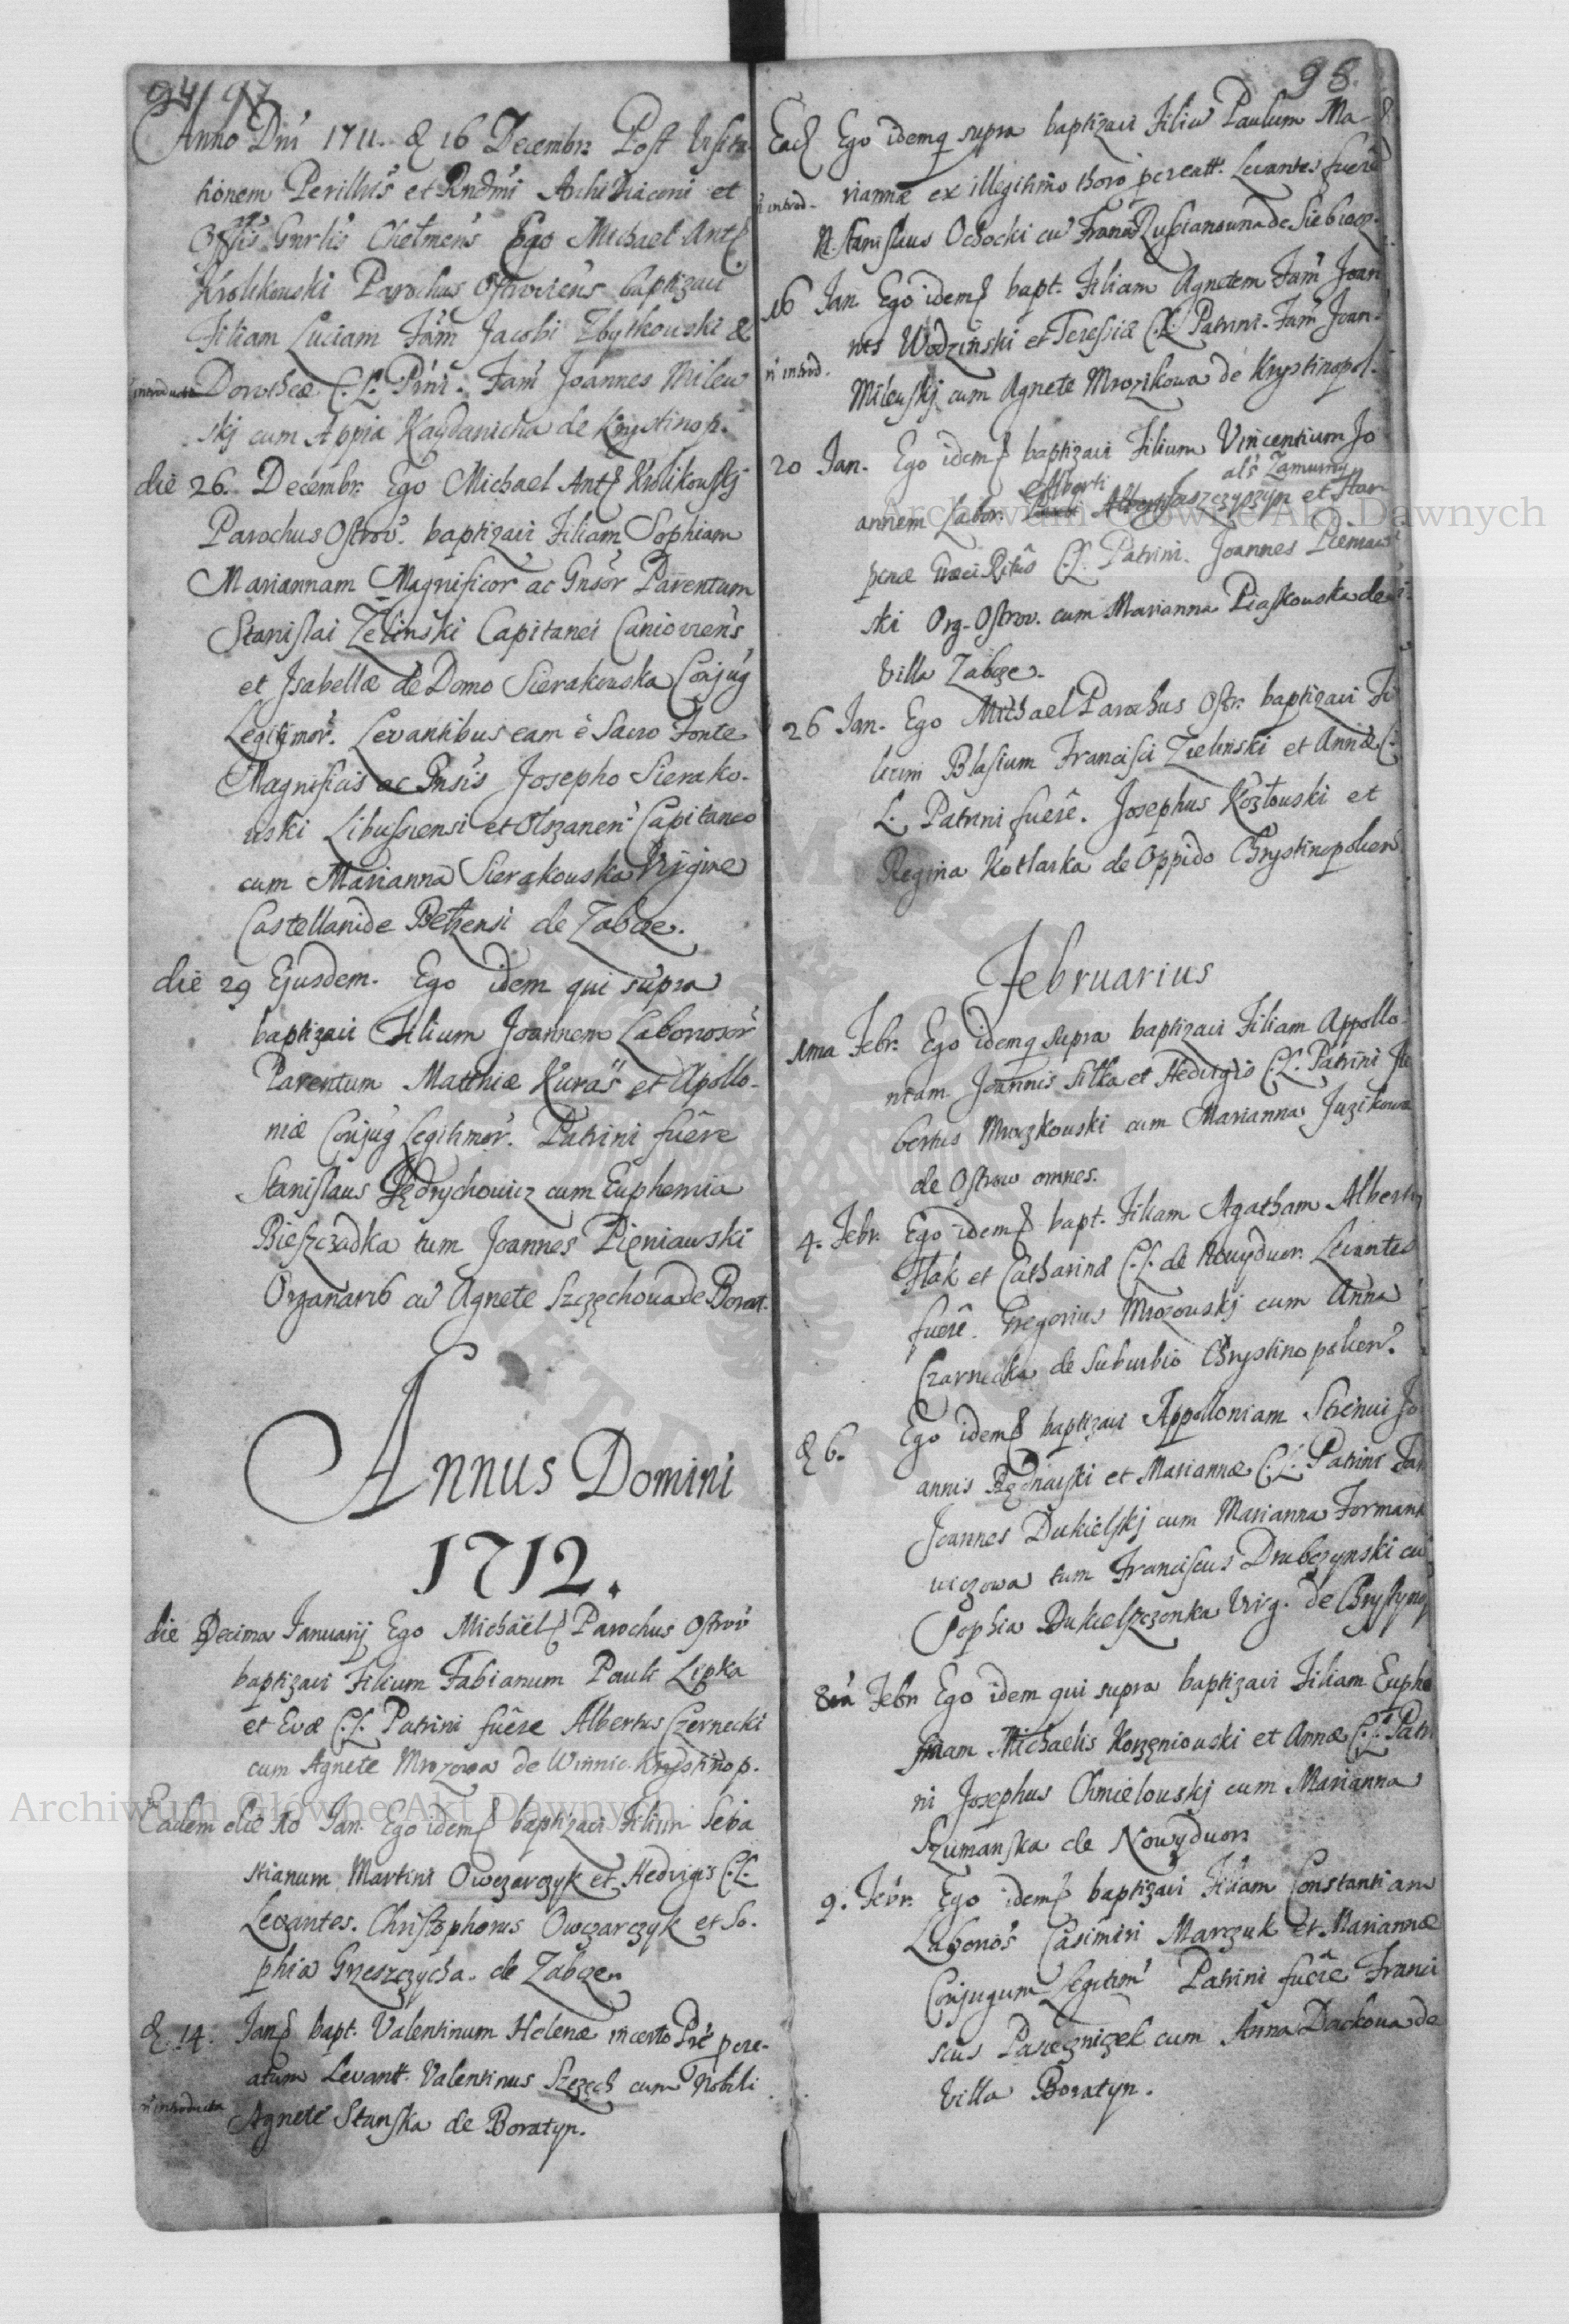 94/97
Anno Dni 1711. d 16 Decembr: Post Visita
tionem Perillris et Rndmi Archidiaconi et
Offlis Gnrlis Chelmens Ego Michael Ant
Krolikowski Parochus Ostroviens baptizavi
Filiam Luciam Fam Jacobi Zbytkowski &
introducta Dorotheæ C. L. Pini. Fam Joannes Milew
skj cum Appia Kaydanicha de Krystinop.
die 26. Decembr: Ego Michael Ant Krolikowskj
Parochus Ostrov. baptizavi Filiam Sophiam
Mariannam Magnificor ac Gnsor Parentum
Stanislai Zelinski Capitanei Canioviens
et Isabellæ de Domo Sierakowska Conjug
Legitimor. Levantibus eam è Sacro Fonte
Magnificis ac Gnsis Josepho Sierako-
wski Libussiensi et Olszanen Capitaneo
cum Marianna Sierakowska Virgine
Castellanide Belzensi de Zabcze.
die 29 Ejusdem. Ego idem qui supra
baptizavi Filium Joannem Laboriosor
Parentum Matthiæ Kuras et Apollo-
niæ Conjug Legitimor. Patrini fuêre
Stanislaus Jędrychowicz cum Euphemia
Bieszczadka tum Joannes Pieniawski
Organari9 cu Agnete Szczechowa de Borat.
Annus Domini
1712.
die Decima Januarij Ego Michaël Parochus Ostrov
baptizavi Filium Fabianum Pauli Lipka
et Evæ C. L. Patrini fuêre Albertus Czernecki
cum Agnete Mrozowa de Winnic. Krystinop.
Eadem die 10 Jan. Ego idem baptizavi Filium Seba
stianum Martini Owczarczyk et Hedvigis C. L.
Levantes. Christophorus Owczarczyk et So-
phia Grzeszczycha. de Zabcze
d. 14. Jan bapt. Valentinum Helenæ incerto Pre pcre-
atum Levant. Valentinus Szczech cum Nobili
n introducta Agnete Stanska de Boratyn.
98.
Ead Ego idem q supra baptizavi Filiu Paulum Ma-
n introd- riannæ ex illegitimo thoro pcreatt. Levantes fuere
N. Stanislaus Ochocki cu
16 Jan Ego idem bapt. Filiam Agnetem Fam Joan
nis Wodzinski et Teressiæ C. L. Patrini. Fam Joan-
n introd. Milewskj cum Agnete Mrozikowa de Krystinopol.
20 Jan. Ego idem baptizavi Filium Vincentium Jo
als Zamurny
annem Labor. Alberti et Stan
penæ Græci Ritûs C. L. Patrini. Joannes Pieniaw
ski Org. Ostrov. cum Marianna Piaskowska de
Villa Zabcze.
26 Jan. Ego Michael Parochus Ostr. baptizavi Fi
lium Blasium Francisci Zielinski et Annæ C.
L. Patrini fuêre. Josephus Kozłowski et
Regina Kotlarka de Oppido Chrystinopolien
Februarius
1ma Febr. Ego idem q supra baptizavi Filiam Appollo
niam Joannis Sitka et Hedvigis C. L. Patrini
bertus Mroczkowski cum Marianna Juzikowa
de Ostrow omnes.
4. Febr. Ego idem bapt. Filiam Agatham Alberti
Flak et Catharinæ C. L. de Nowydwor. Levantes
fuerê. Gregorius Mrozowskj cum Anna
Czarnecka de Suburbio Chrystinopolien.
d 6. Ego idem baptizavi Appolloniam Strenui Jo
annis Będnarski et Mariannæ C. L. Patrini Fam
Joannes Dukielskj cum Marianna Formank
iewiczowa tum Franciscus Drubczynski cu
Sophia Dukielszczonka Virg. de Chrystynop
8va Febr Ego idem qui supra baptizavi Filiam Euphe
miam Michaelis Korzeniowski et Annæ C. L. Patri
ni Josephus Chmielowskj cum Marianna
Szumanska de Nowydwor
9. Febr. Ego idem baptizavi Filiam Constantiam
Laborios Casimiri Marczuk et Mariannæ
Conjugum Legitim Patrini fuêre Franci
scus Pasieczniczek cum Anna Dackowa de
Villa Boratyn.
Archiwum Główne Akt Dawnych
Archiwum Główne Akt Dawnych